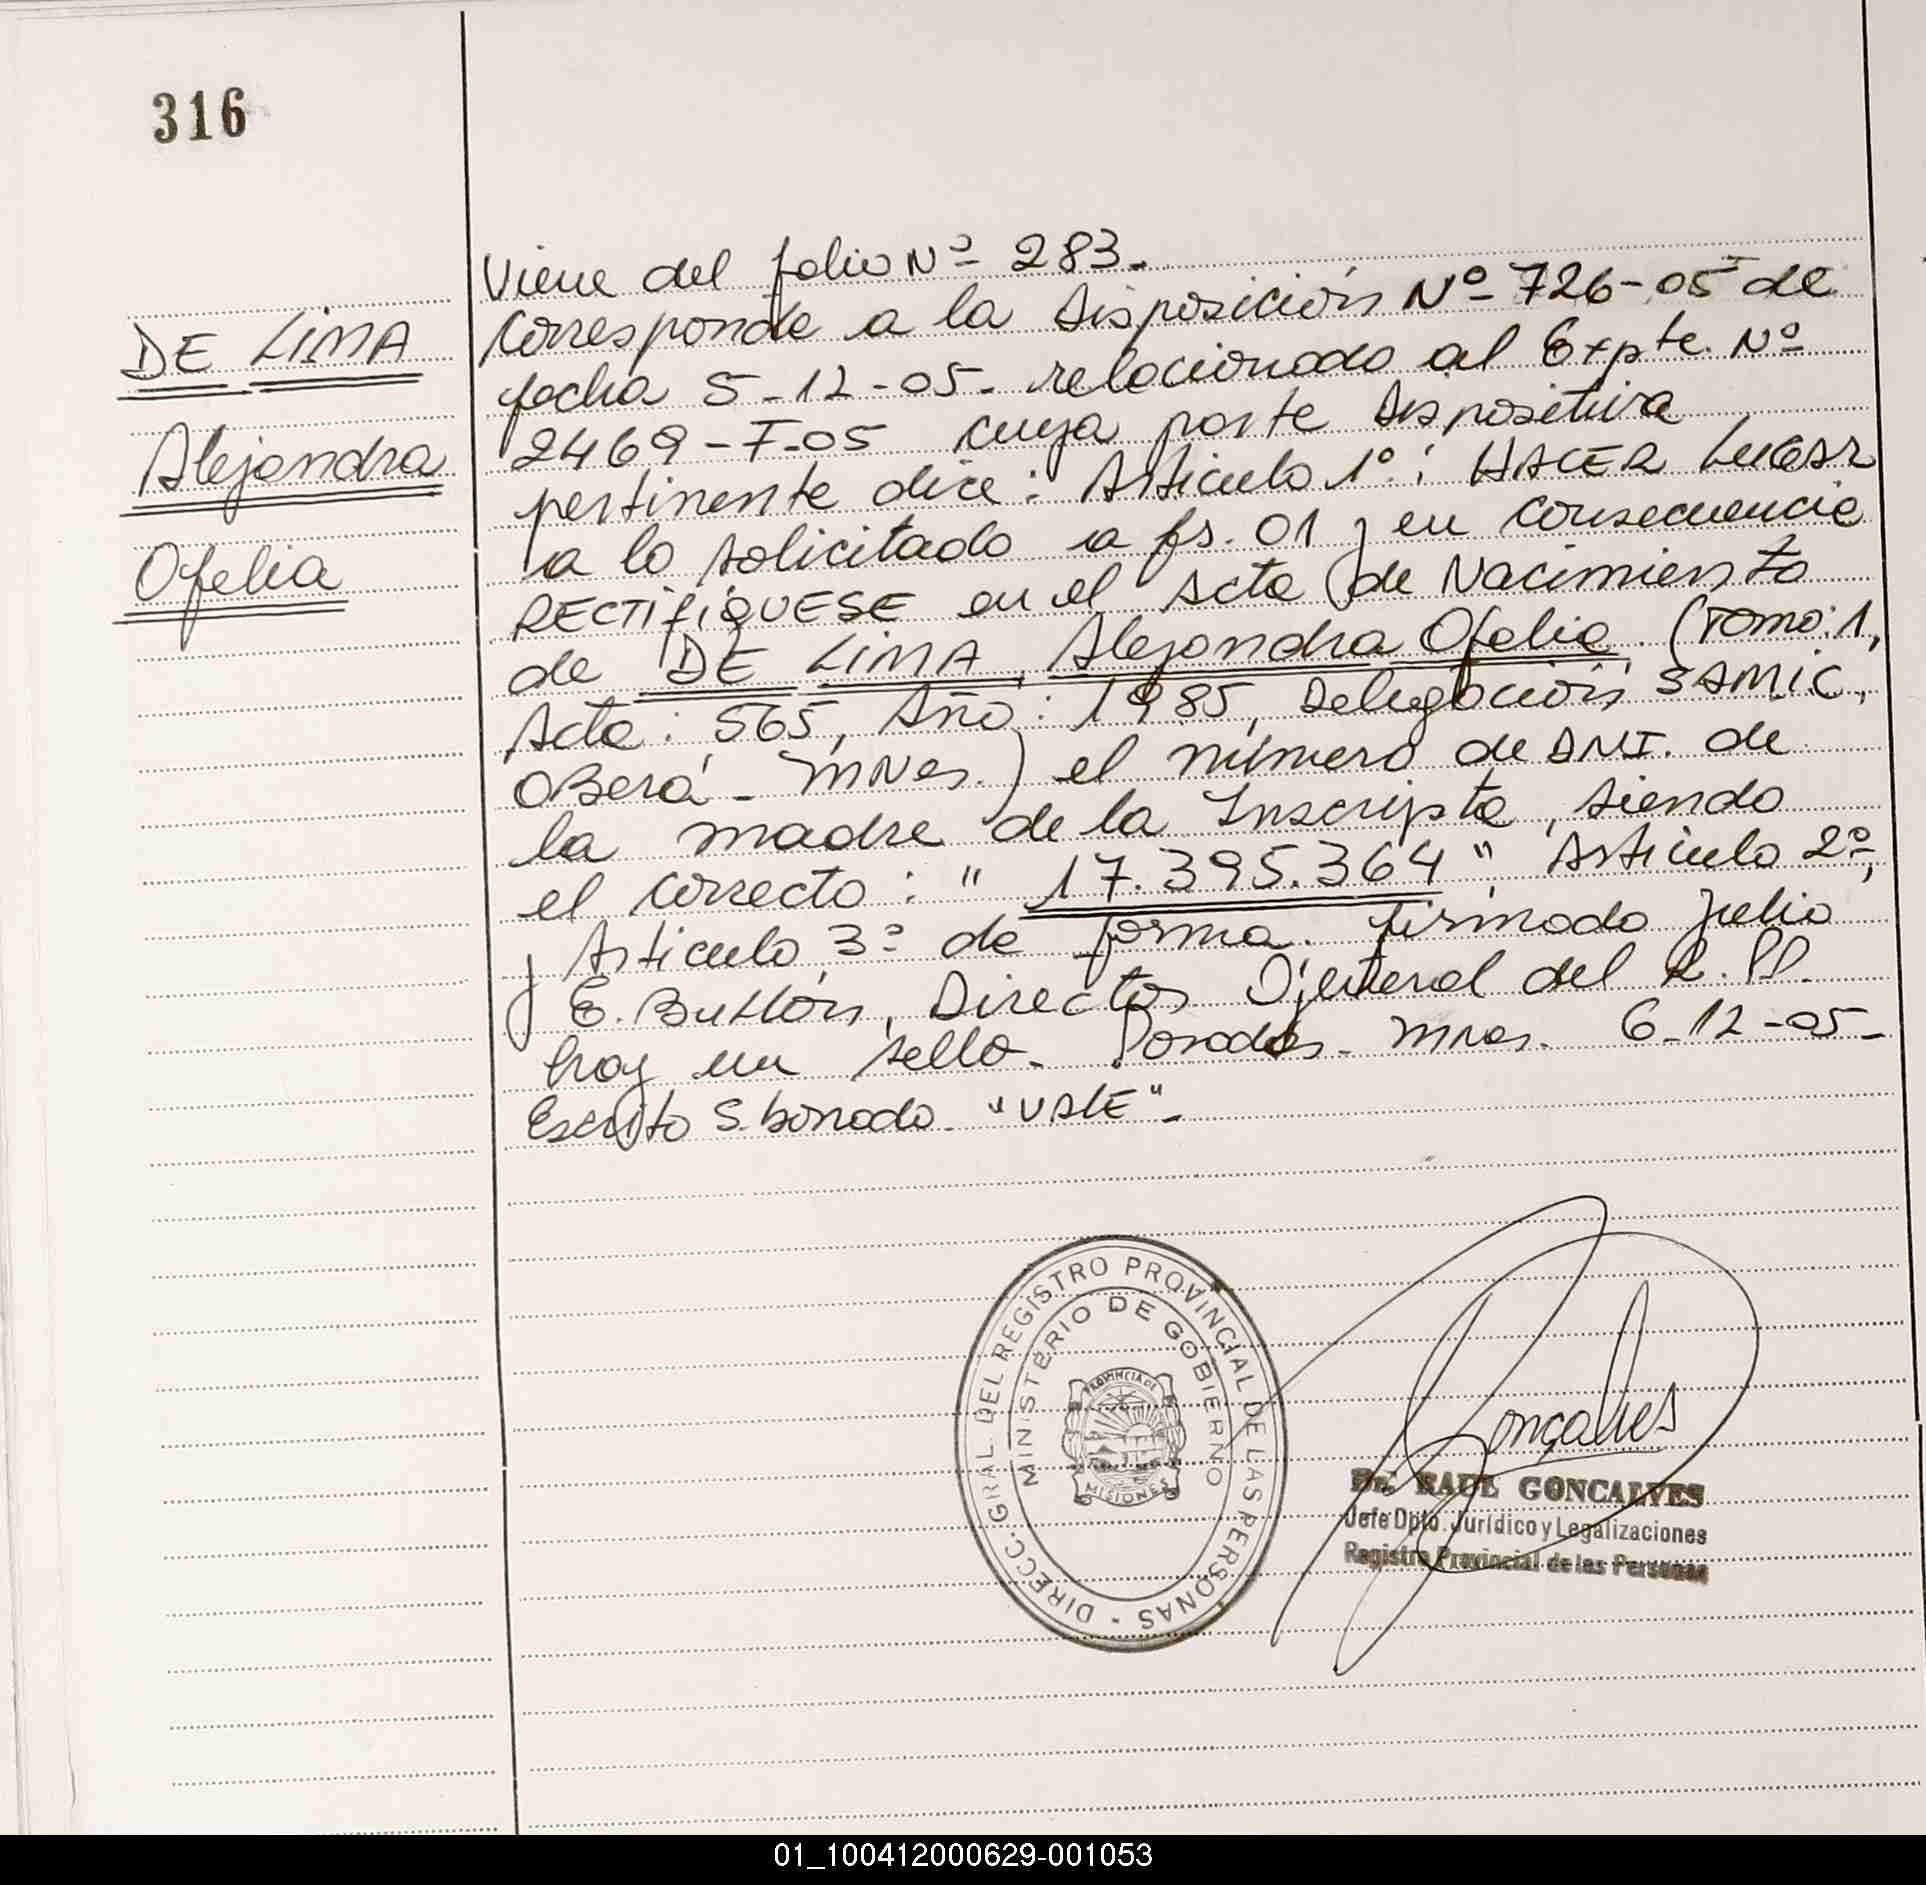 316
DE LIMA
Alejandra
Ofelia
Viene del folio Nº 283.
Corresponde a la Disposición Nº 726-05 de
fecha 5-12-05. relacionado al Expte. Nº
2469-F-05 cuya parte dispositiva
pertinente dice: Articulo 1º: HACER LUGAR
a lo solicitado a fs. 01 y en consecuencia
RECTIFIQUESE en el Acta de Nacimiento
de DE LIMA, Alejandra Ofelia. (Tomo: 1,
Acta: 565, Año: 1985, Delegación SAMIC,
OBerá - MNes.) el número de DNI. de
la madre de la Inscripta, siendo
el correcto: " 17.395.364 ". Articulo 2º,
y Articulo 3º de forma. firmado Julio
E. Buttón, Director General del R.PP.
hay un sello. Posadas. Mnes. 6-12-05-
Escrito S. borrado. "VALE".
DIRECC. GRAL. DEL REGISTRO PROVINCIAL DE LAS PERSONAS -
MINISTERIO DE GOBIERNO
PROVINCIA DE
MISIONES
Gonçalves
Dr. RAUL GONCALVES
Jefe Dpto. Jurídico y Legalizaciones
Registro Provincial de las Personas
01_100412000629-001053